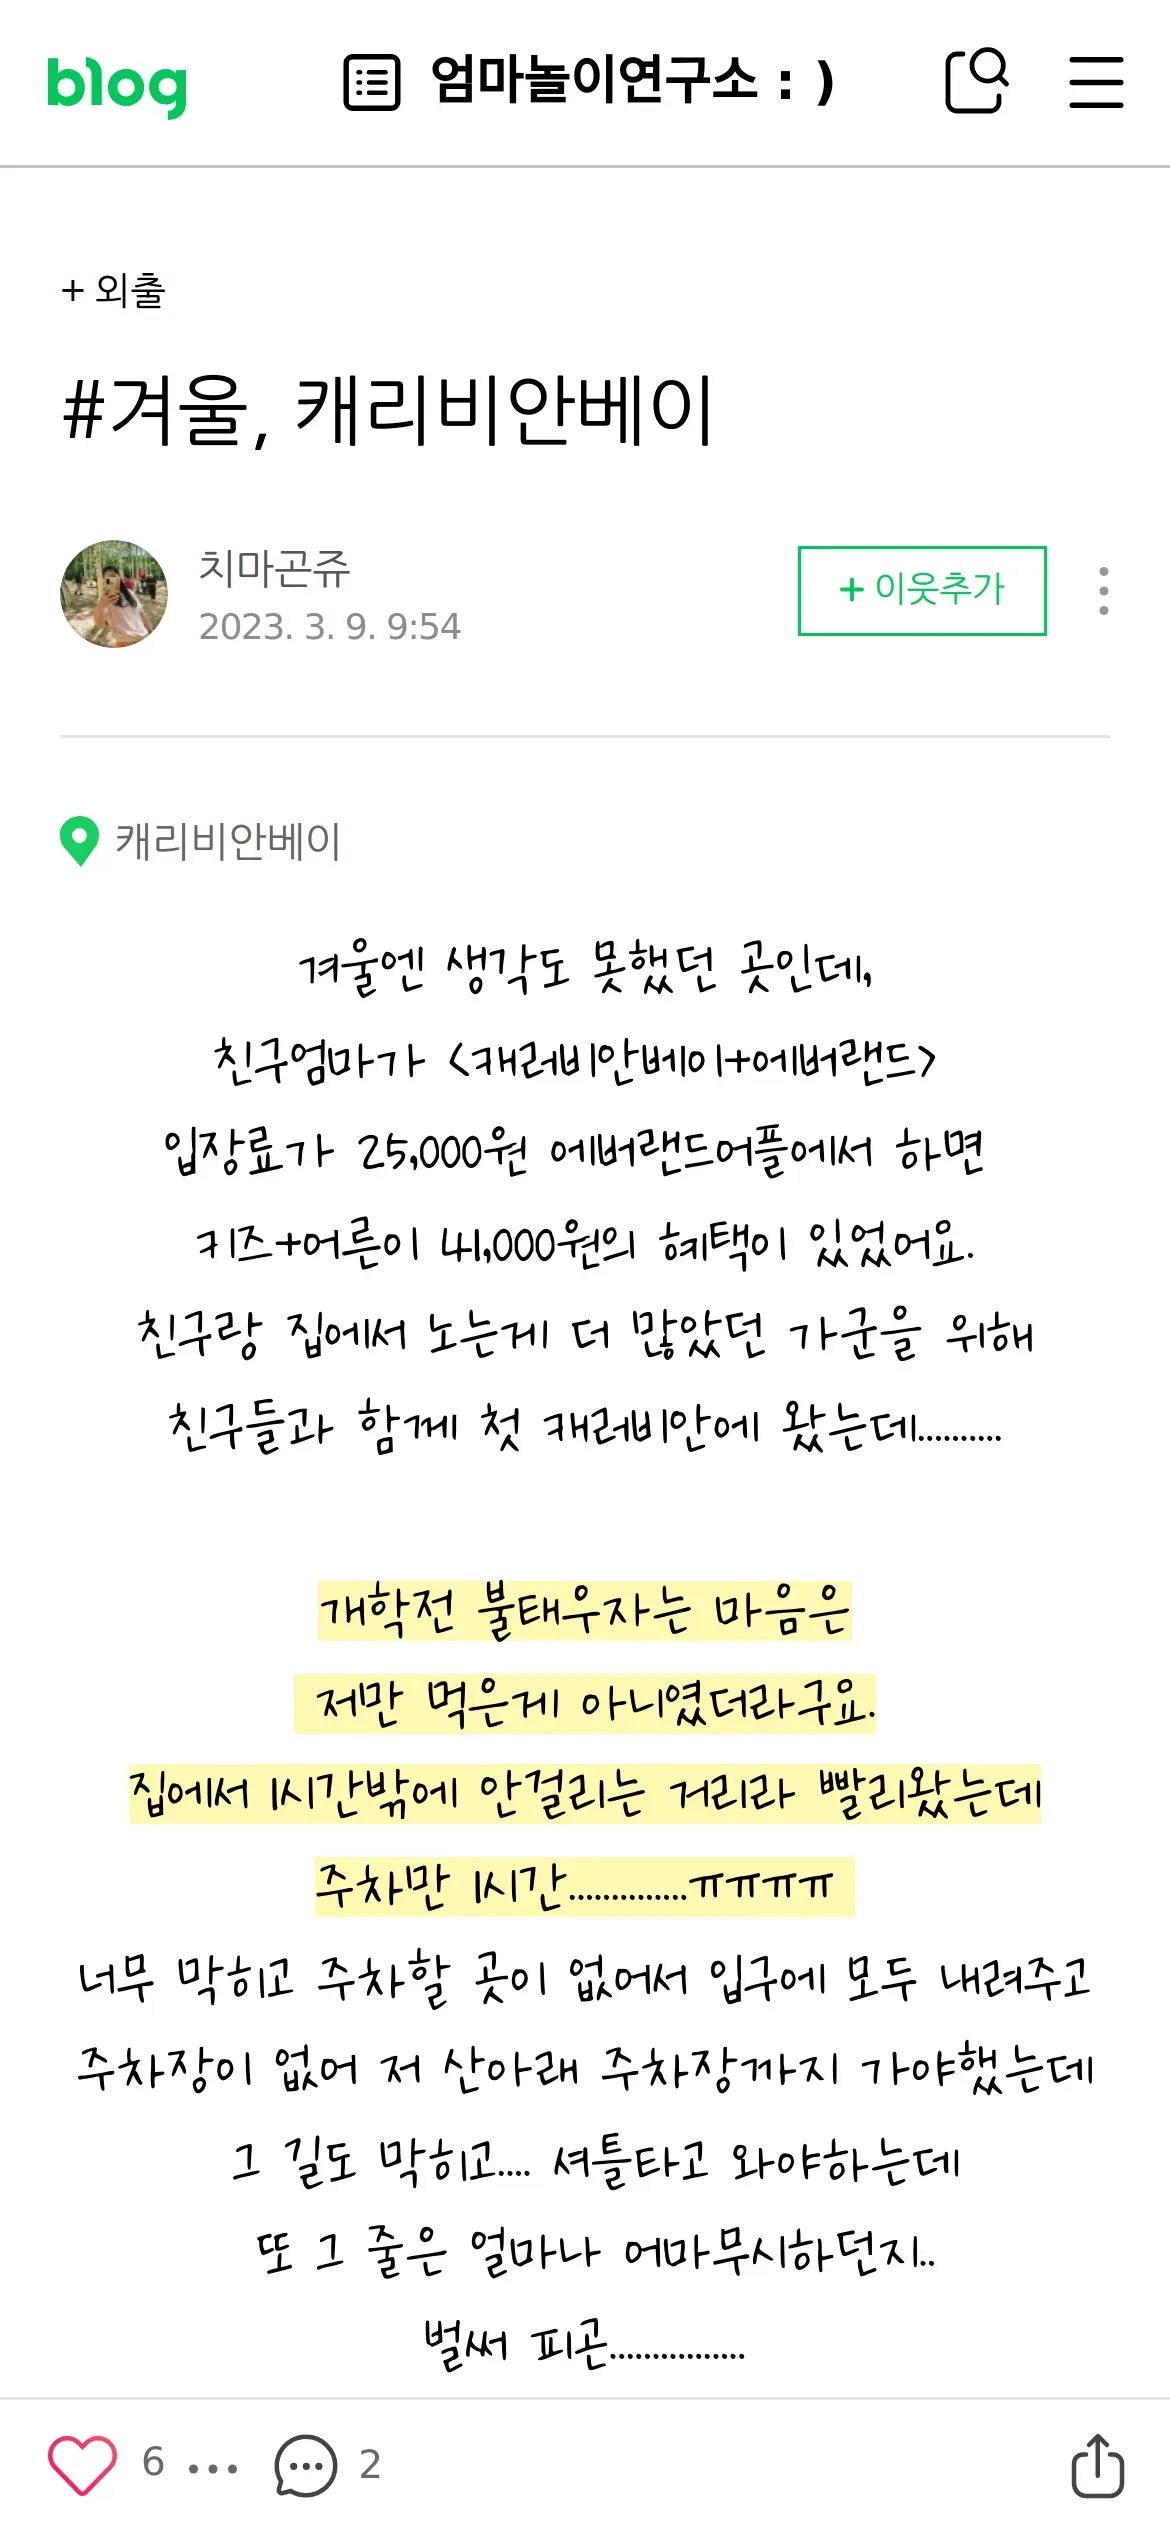 blog
엄마놀이연구소 : )
+ 외출
#겨울, 캐리비안베이
치마곤쥬
2023. 3. 9. 9:54
+ 이웃추가
캐리비안베이
겨울엔 생각도 못했던 곳인데,
친구엄마가 <캐러비안베이+에버랜드>
입장료가 25,000원 에버랜드어플에서 하면
키즈+어른이 41,000원의 혜택이 있었어요.
친구랑 집에서 노는게 더 많았던 가군을 위해
친구들과 함께 첫 캐러비안에 왔는데..........
개학전 불태우자는 마음은
저만 먹은게 아니였더라구요.
집에서 1시간밖에 안걸리는 거리라 빨리왔는데
주차만 1시간..............ㅠㅠㅠㅠ
너무 막히고 주차할 곳이 없어서 입구에 모두 내려주고
주차장이 없어 저 산아래 주차장까지 가야했는데
그 길도 막히고.... 셔틀타고 와야하는데
또 그 줄은 얼마나 어마무시하던지..
벌써 피곤................
6
2